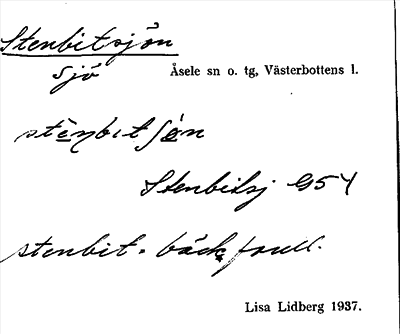 Stenbitsjön
Sjö Åsele sn o. tg, Västerbottens l.
stèn̥bıtʃö́n
Stenbitsj G54
stenbit = bäck
Lisa Lidberg 1937.